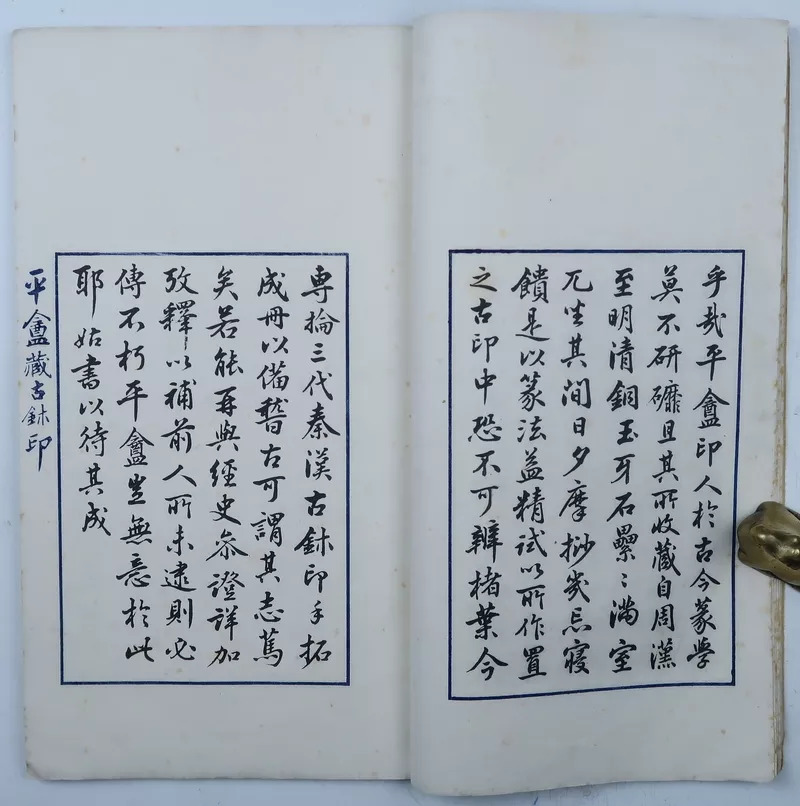 乎哉平盦印人於古今篆學
莫不研礲且其所收藏自周漢
至明清銅玉牙石纍〻滿室
兀坐其間日夕摩挱幾忘寢
饋是以篆法益精試以所作置
之古印中恐不可辨楮葉今
專掄三代秦漢古鉥印手拓
成冊以備稽古可謂其志篤
矣若能再與經史参證詳加
攷釋以補前人所未逮則必
傳不朽平盦豈無意於此
耶姑書以待其成
平盦藏古鉥印